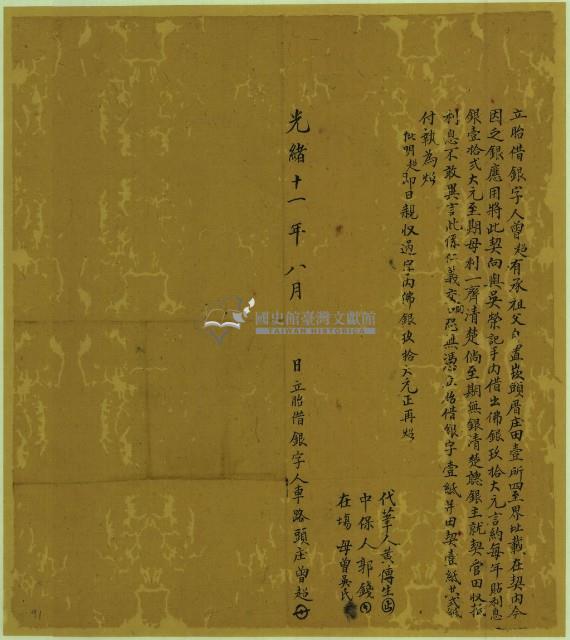 立胎借銀字人曾超有承祖父明置崁頭厝庄田壹所四至界址載在契內今
因乏銀應用將此契向與吳榮記手內借出佛銀玖拾大元言約每年貼利息
銀壹拾弍大元至期母利一齊清楚倘至期無銀清楚聽銀主就契管田收抵
利息不敢異言此係仁義交關恐無憑立胎借銀字壹紙并田契壹紙共弍紙
付執為炤
批明超即日親收過字內佛銀玖拾大元正再炤
代筆人黃傳生
中保人郭錢
在塲母曾吳氏
光緒十一年八月 日立胎借銀字人車路頭庄曾超
國史館臺灣文獻館
TAIWAN HISTORICA
91